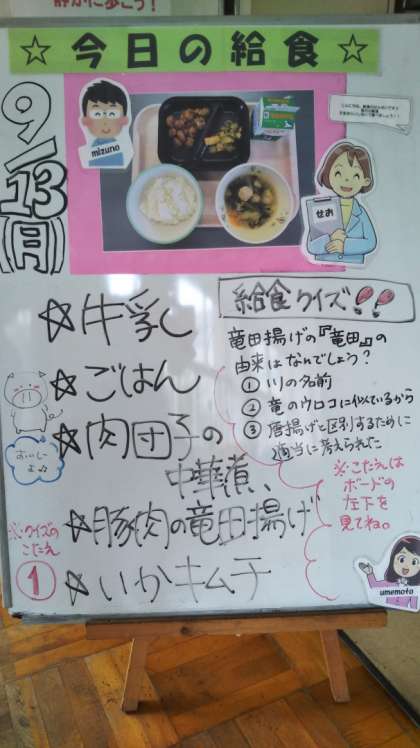 静かに歩こう！
☆今日の給食☆
9/13(月)
mizuno
せお
☆牛乳
☆ごはん
☆肉団子の
中華煮、
☆豚肉の竜田揚げ
☆いかキムチ
おいしーよ♫
給食クイズ!!
竜田揚げの『竜田』の
由来はなんでしょう？
①川の名前
②竜のウロコに似ているから
③唐揚げと区別するために
適当に考えられた
※こたえは
ボードの
左下を
見てね。
※クイズの
こたえ
①
umemoto